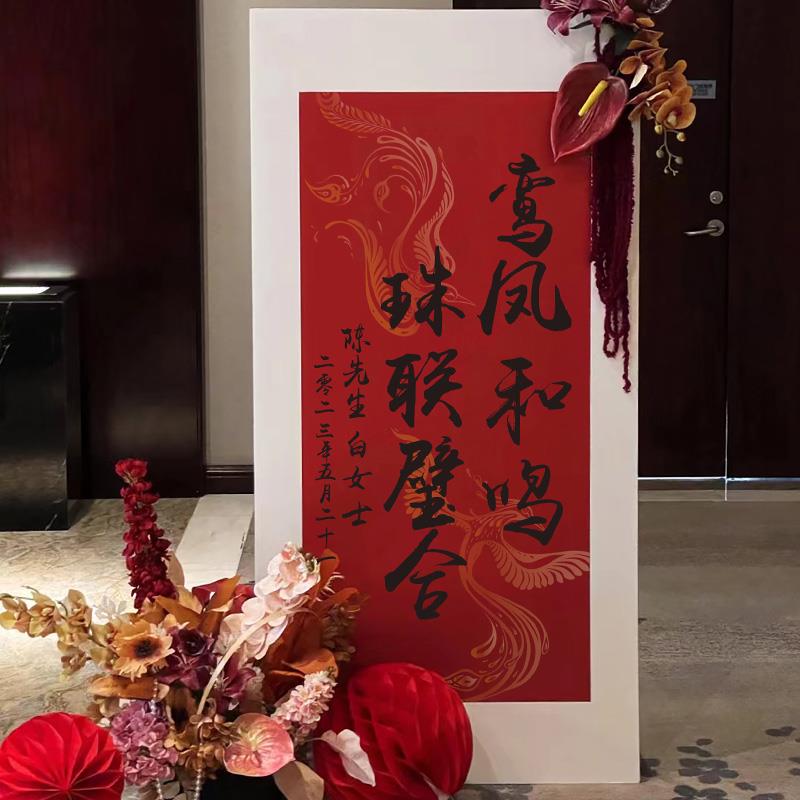 鸾凤和鸣
珠联璧合
陈先生 白女士
二零二三年五月二十一